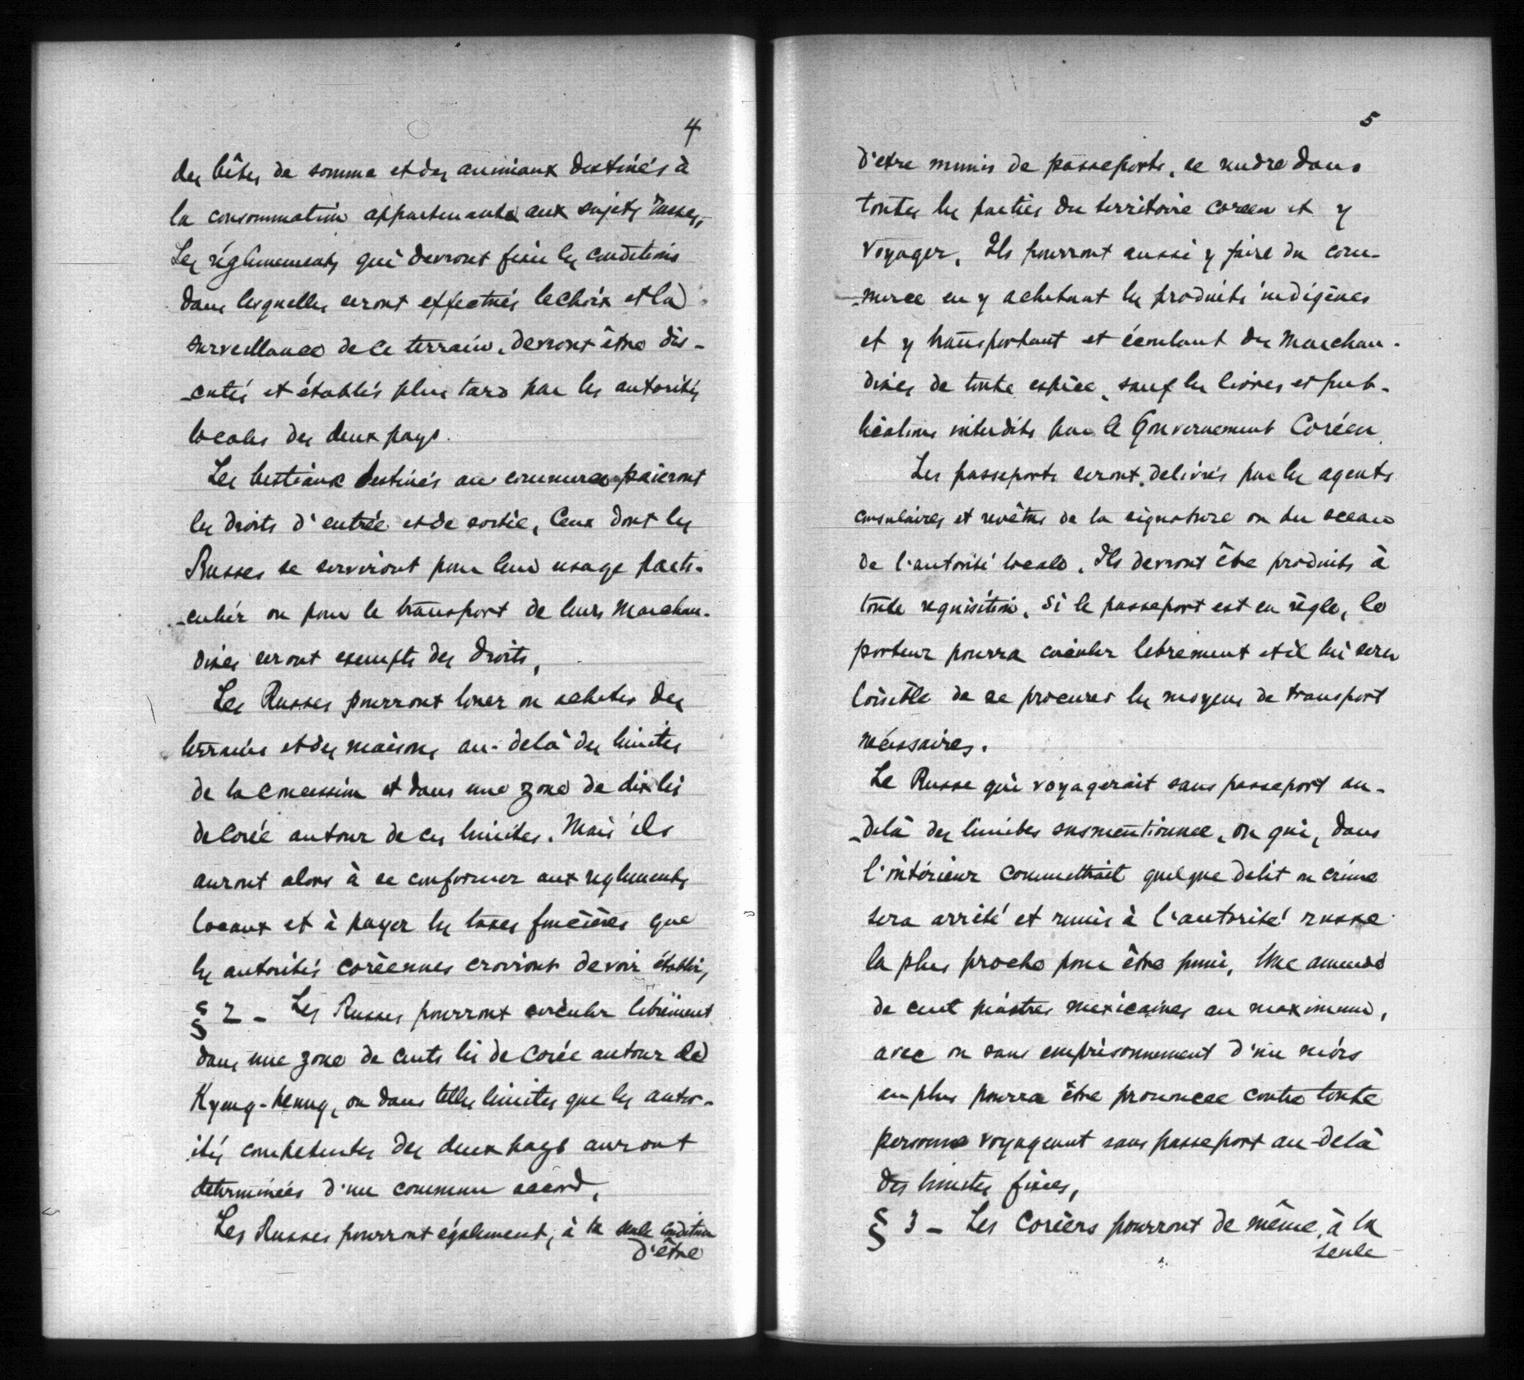 4
des bêtes de somme et des animaux destinés à
la consommation appartenants aux sujets russes,
Les réglements qui devront fixer les conditions
dans lesquelles seront effectués le choix et la
surveillance de ce terrain, devront être dis-
-cutés et établis plus tard par les autorités
locales des deux pays.
Les bestiaux destinés au commerce paieront
les droits d'entrée et de sortie, Ceux dont les
Russes se serviront pour leur usage parti-
-culier ou pour le transport de leurs marchan-
dises seront exempts des droits,
Les Russes pourront louer ou acheter des
terrains et des maisons au-delà des limites
de la concession et dans une zone de dix lis
de Corée autour de ces limites. Mais ils
auront alors à se conformer aux reglements
locaux et à payer les taxes foncières que
les autorités coréennes croiront devoir établir,
§ 2 - Les Russes pourront circuler librement
dans une zone de cents lis de Corée autour de
Kyeng-heung, ou dans telles limites que les autor-
ités competentes des deux pays auront
determinées d'un commun accord,
Les Russes pourront également, à la seule condition
d'être
5
d'etre munis de passeports, se rendre dans
toutes les parties du territoire coreen et y
voyager, Ils pourront aussi y faire du com-
-merce en y achetant les produits indigènes
et y transportant et écoulant des marchan-
dises de toute espèce, sauf les livres et pub-
lications interdits par le Gouvernement Coréen
Les passeports seront delivrés par les agents
consulaires et revêtus de la signature ou du sceau
de l'autorité locale. Ils devront être produits à
toute requisition. Si le passeport est en règle, le
porteur pourra circuler librement et il lui sera
loisible de se procurer les moyens de transport
nécessaires.
Le Russe qui voyagerait sans passeport au-
-delà des limites susmentionnee, ou qui, dans
l'intérieur commettrait quelque delit ou crime
sera arrêté et remis à l'autorité russe
la plus proche pour être puni, Une amende
de cent piastres mexicaines au maximum,
avec ou sans emprisonnement d'un mois
en plus pourra être prononcee contre toute
personne voyageant sans passeport au-delà
des limites fixées,
§ 3 - Les Coréens pourront de même, à la
seule